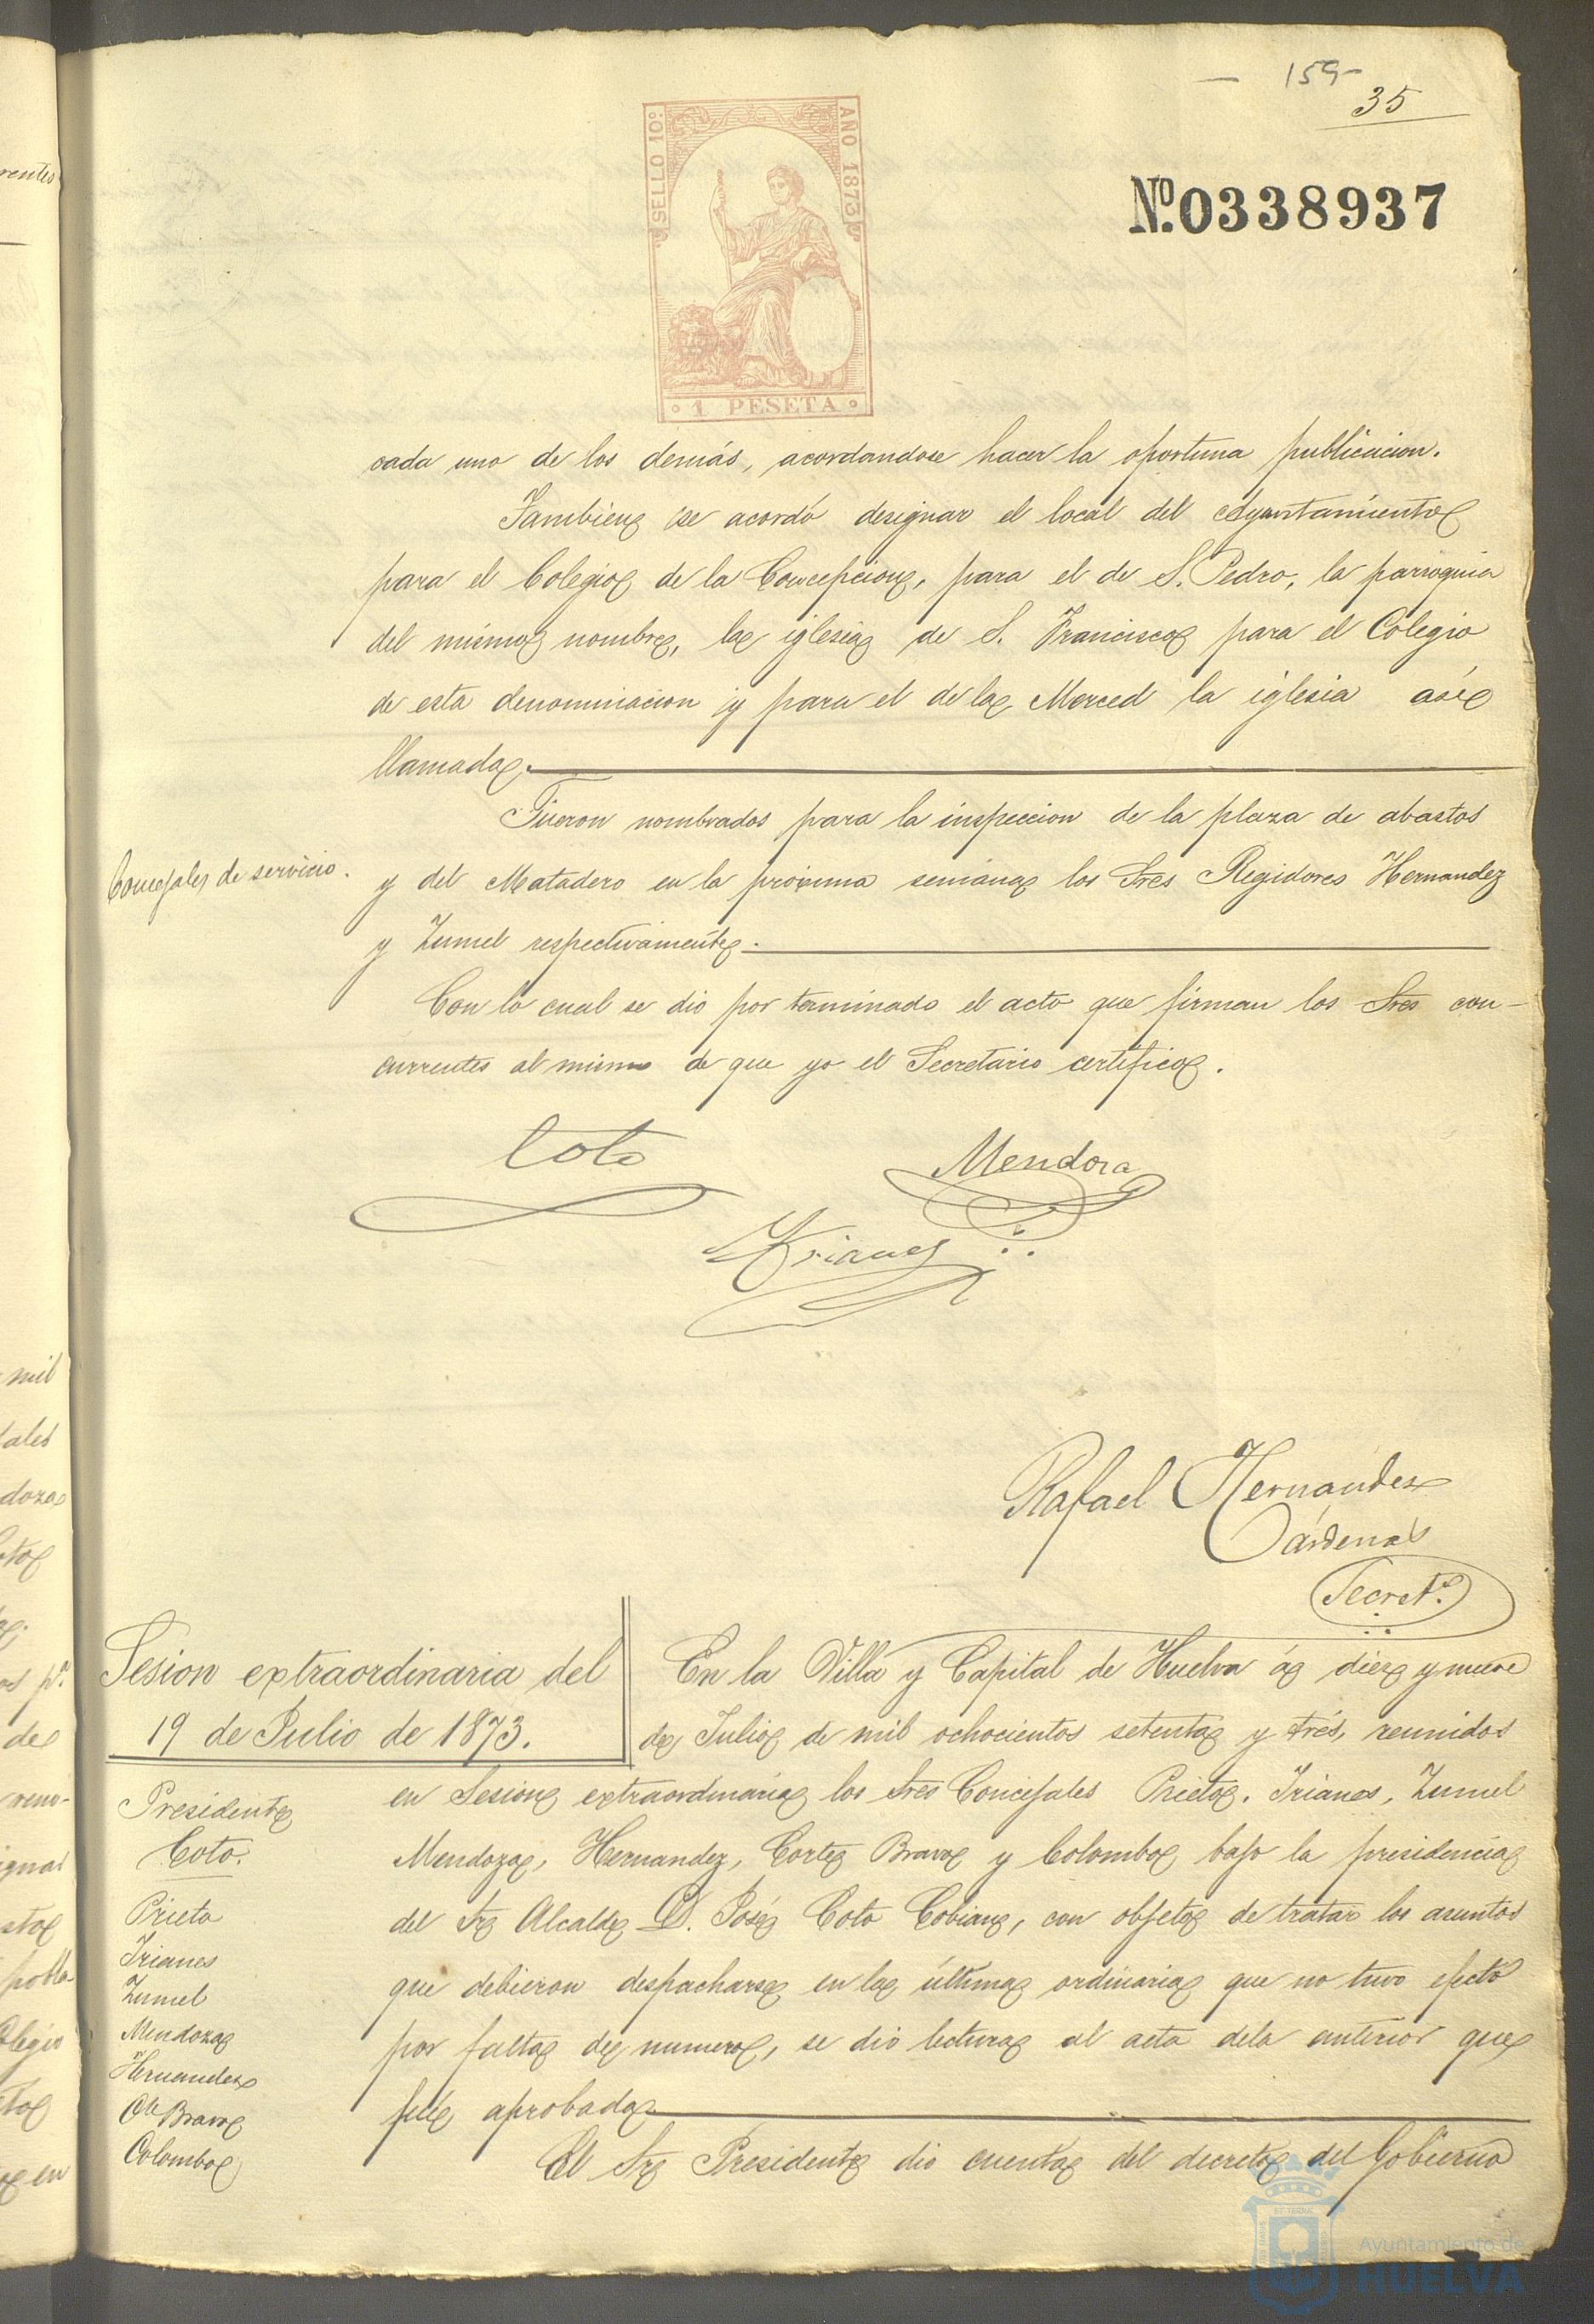 - 159-
35
SELLO 10º
AÑO 1873
Nº 0338937
1 PESETA
cada uno de los demás, acordandose hacer la oportuna publicacion.
Tambien se acordó designar el local del Ayuntamiento
para el Colegio de la Concepcion, para el de S. Pedro, la parroquia
del mismo nombre, la iglesia de S. Francisco para el Colegio
de esta denominacion y para el de la Merced la iglesia asi
llamada.
Fueron nombrados para la inspeccion de la plaza de abastos
Concejales de servicio.
y del Matadero en la proxima semana los Sres Regidores Hernandez
y Zumel respectivamente.
Con lo cual se dio por terminado el acto que firman los Sres con-
currentes al mismo de que yo el Secretario certifico.
Coto
Mendoza
Trianes
Rafael Hernandez
Cárdenas
Secretº.
Sesion extraordinaria del
19 de Julio de 1873.
En la Villa y Capital de Huelva á diez y nueve
de Julio de mil ochocientos setenta y trés, reunidos
en Sesion extraordinaria los Sres Concejales Prieto, Trianes, Zumel
Mendoza, Hernandez, Corte Bravo y Colombo bajo la presidencia
del Sr Alcalde D. José Coto Cobian, con objeto de tratar los asuntos
que debieron despacharse en la última ordinaria que no tuvo efecto
por falta de numero, se dio lectura al acta dela anterior que
fué aprobada.
El Sr Presidente dio cuenta del decreto del Gobierno
Presidente
Coto.
Prieto
Trianes
Zumel
Mendoza
Hernandez
Bravo
Colombo
Ayuntamiento de
HUELVA